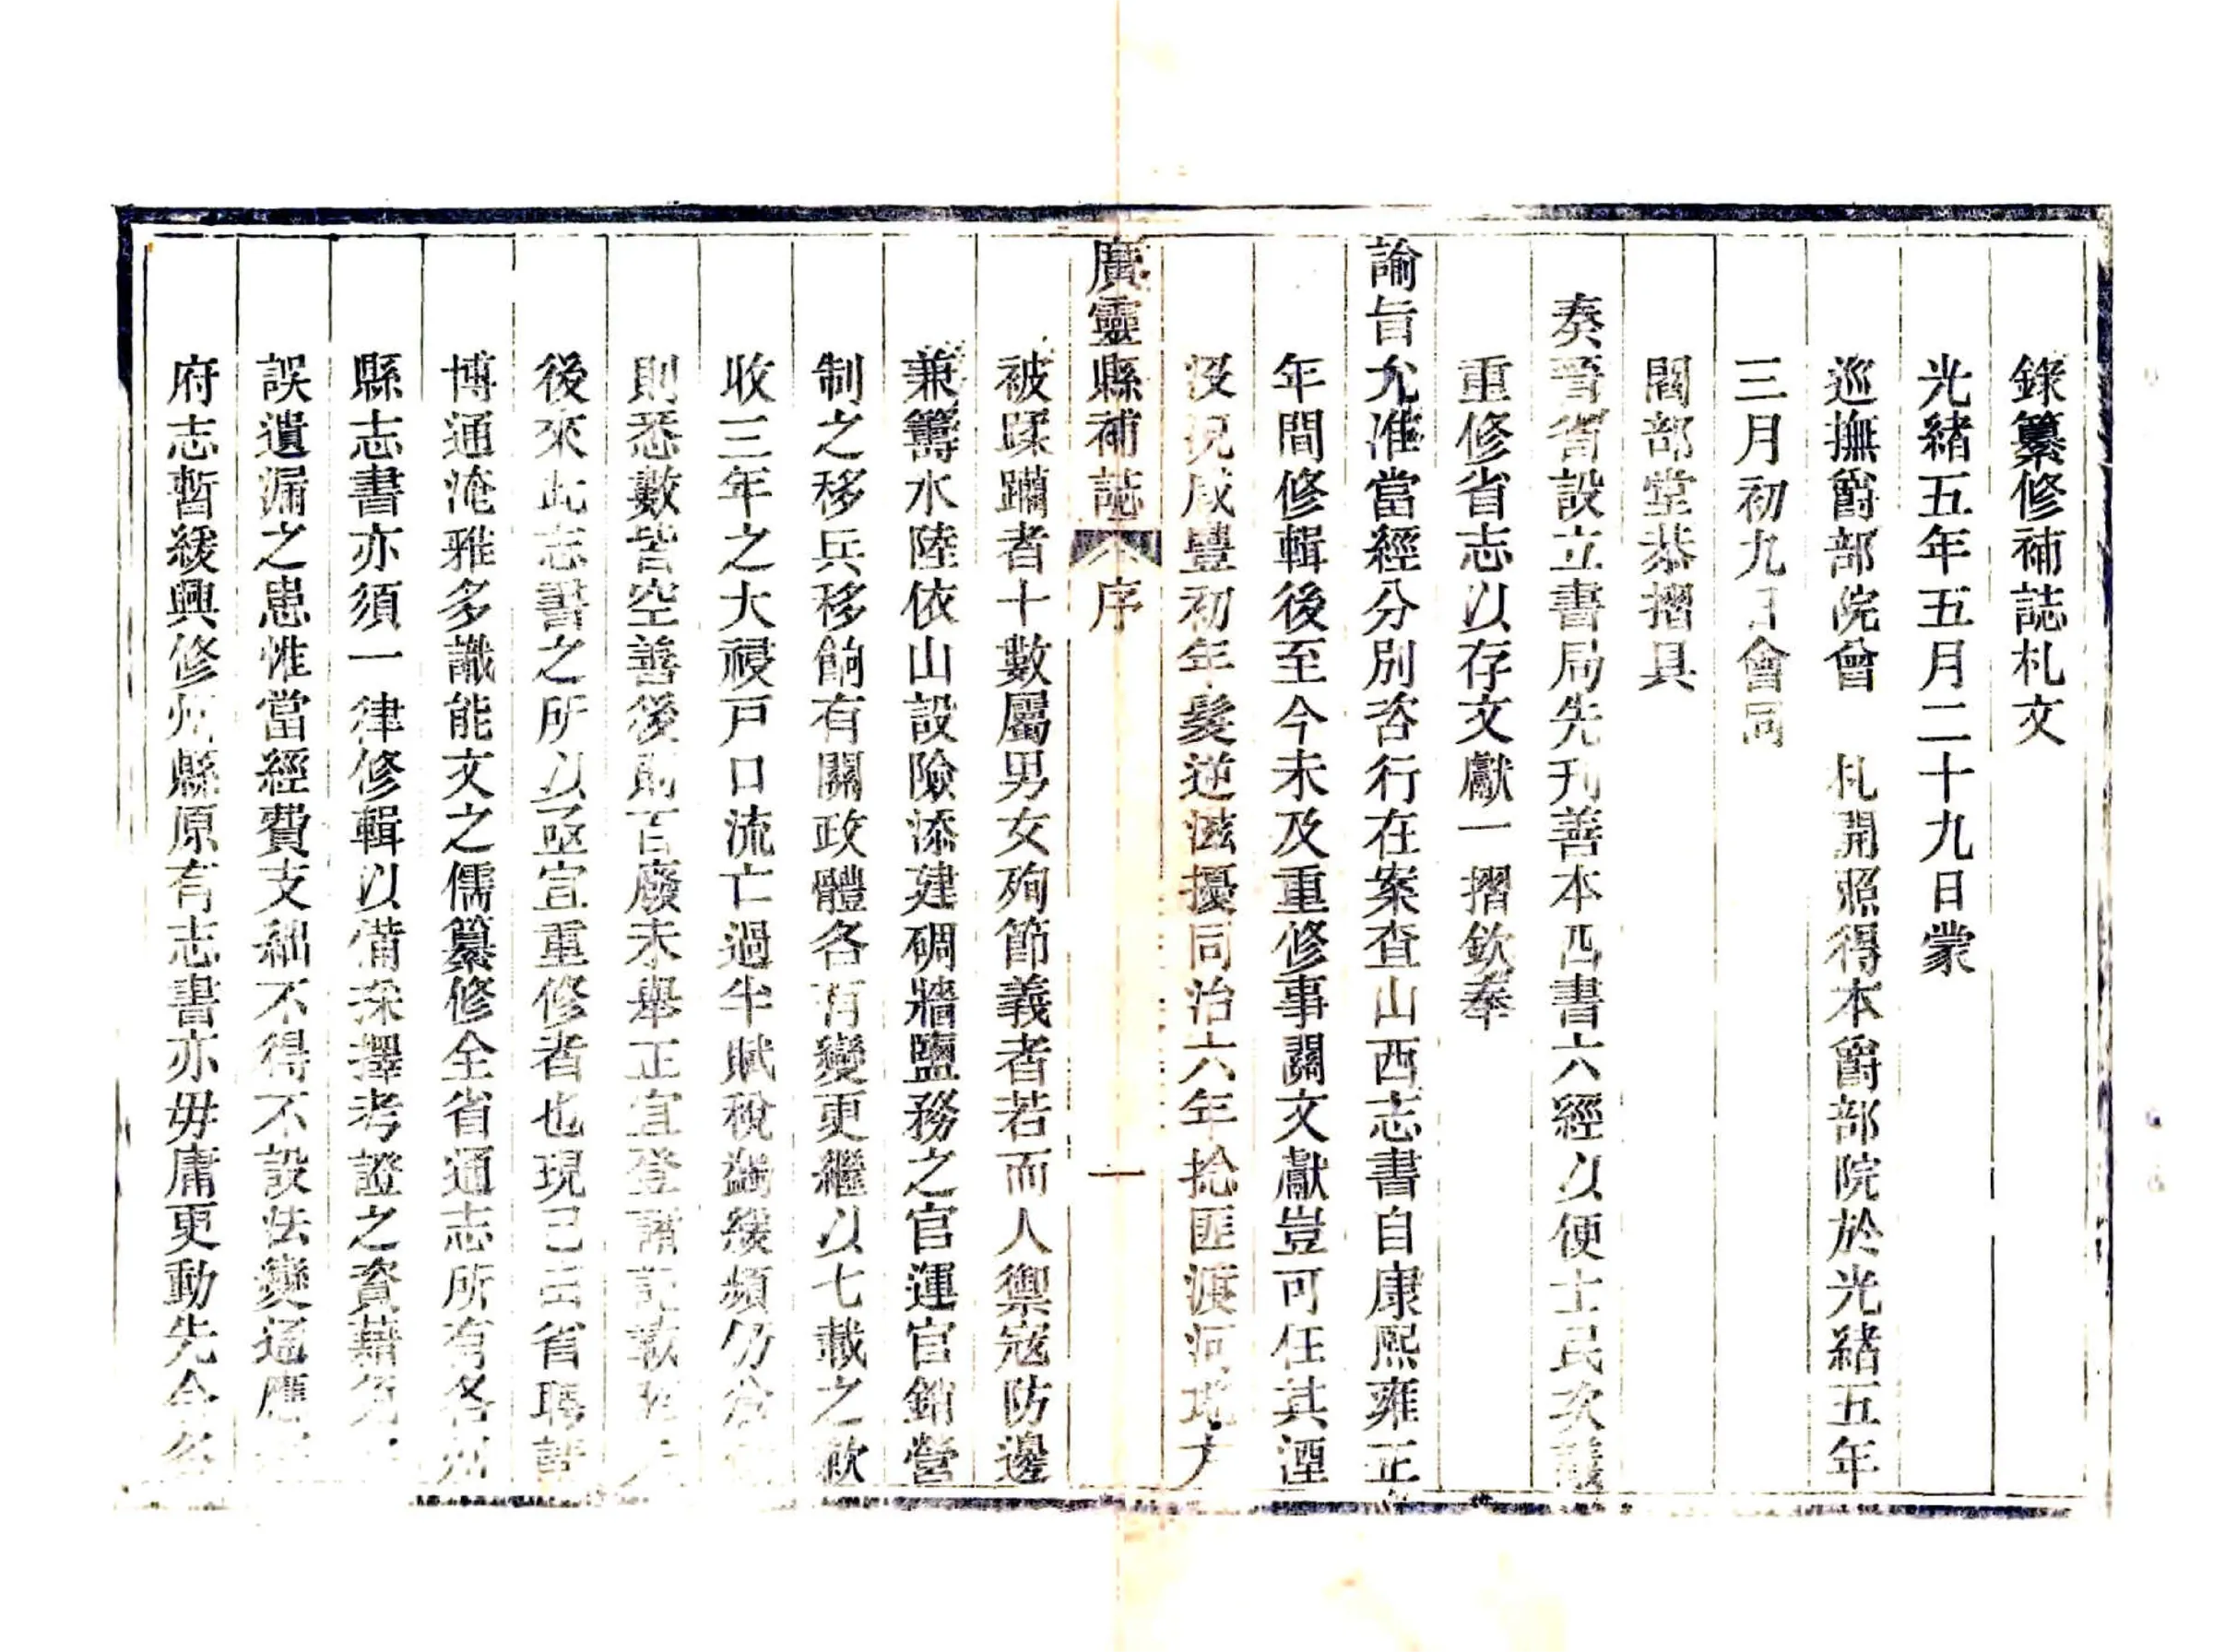 錄纂修補誌札文
光緒五年五月二十九日蒙
巡撫爵部院曾　札開照得本爵部院於光緒五年
三月初九日會同
閻部堂恭摺具
奏晉省設立書局先刋善本四書六經以便士民次議
重修省志以存文獻一摺欽奉
諭旨允准當經分別咨行在案查山西志書自康熙雍正
年間修輯後至今未及重修事關文獻豈可任其湮
沒況咸豐初年髮逆滋擾同治六年捻匪渡河地方
廣靈縣補誌 序 一
被蹂躪者十數屬男女殉節義者若而人禦寇防邊
兼籌水陸依山設險添建碉牆鹽務之官運官銷營
制之移兵移餉有關政體各有變更繼以七載之歉
收三年之大祲戸口流亡過半賦稅蠲緩頻仍倉
則悉數皆空善後則百廢未舉正宜登諸記載
後來此志書之所以亟宜重修者也現已由省聘請
博通淹雅多識能文之儒纂修全省通志所有各州
縣志書亦須一律修輯以備採擇考證之資藉免
誤遺漏之患惟當經費支絀不得不設法變通應
府志暫緩興修州縣原有志書亦毋庸更動先令各